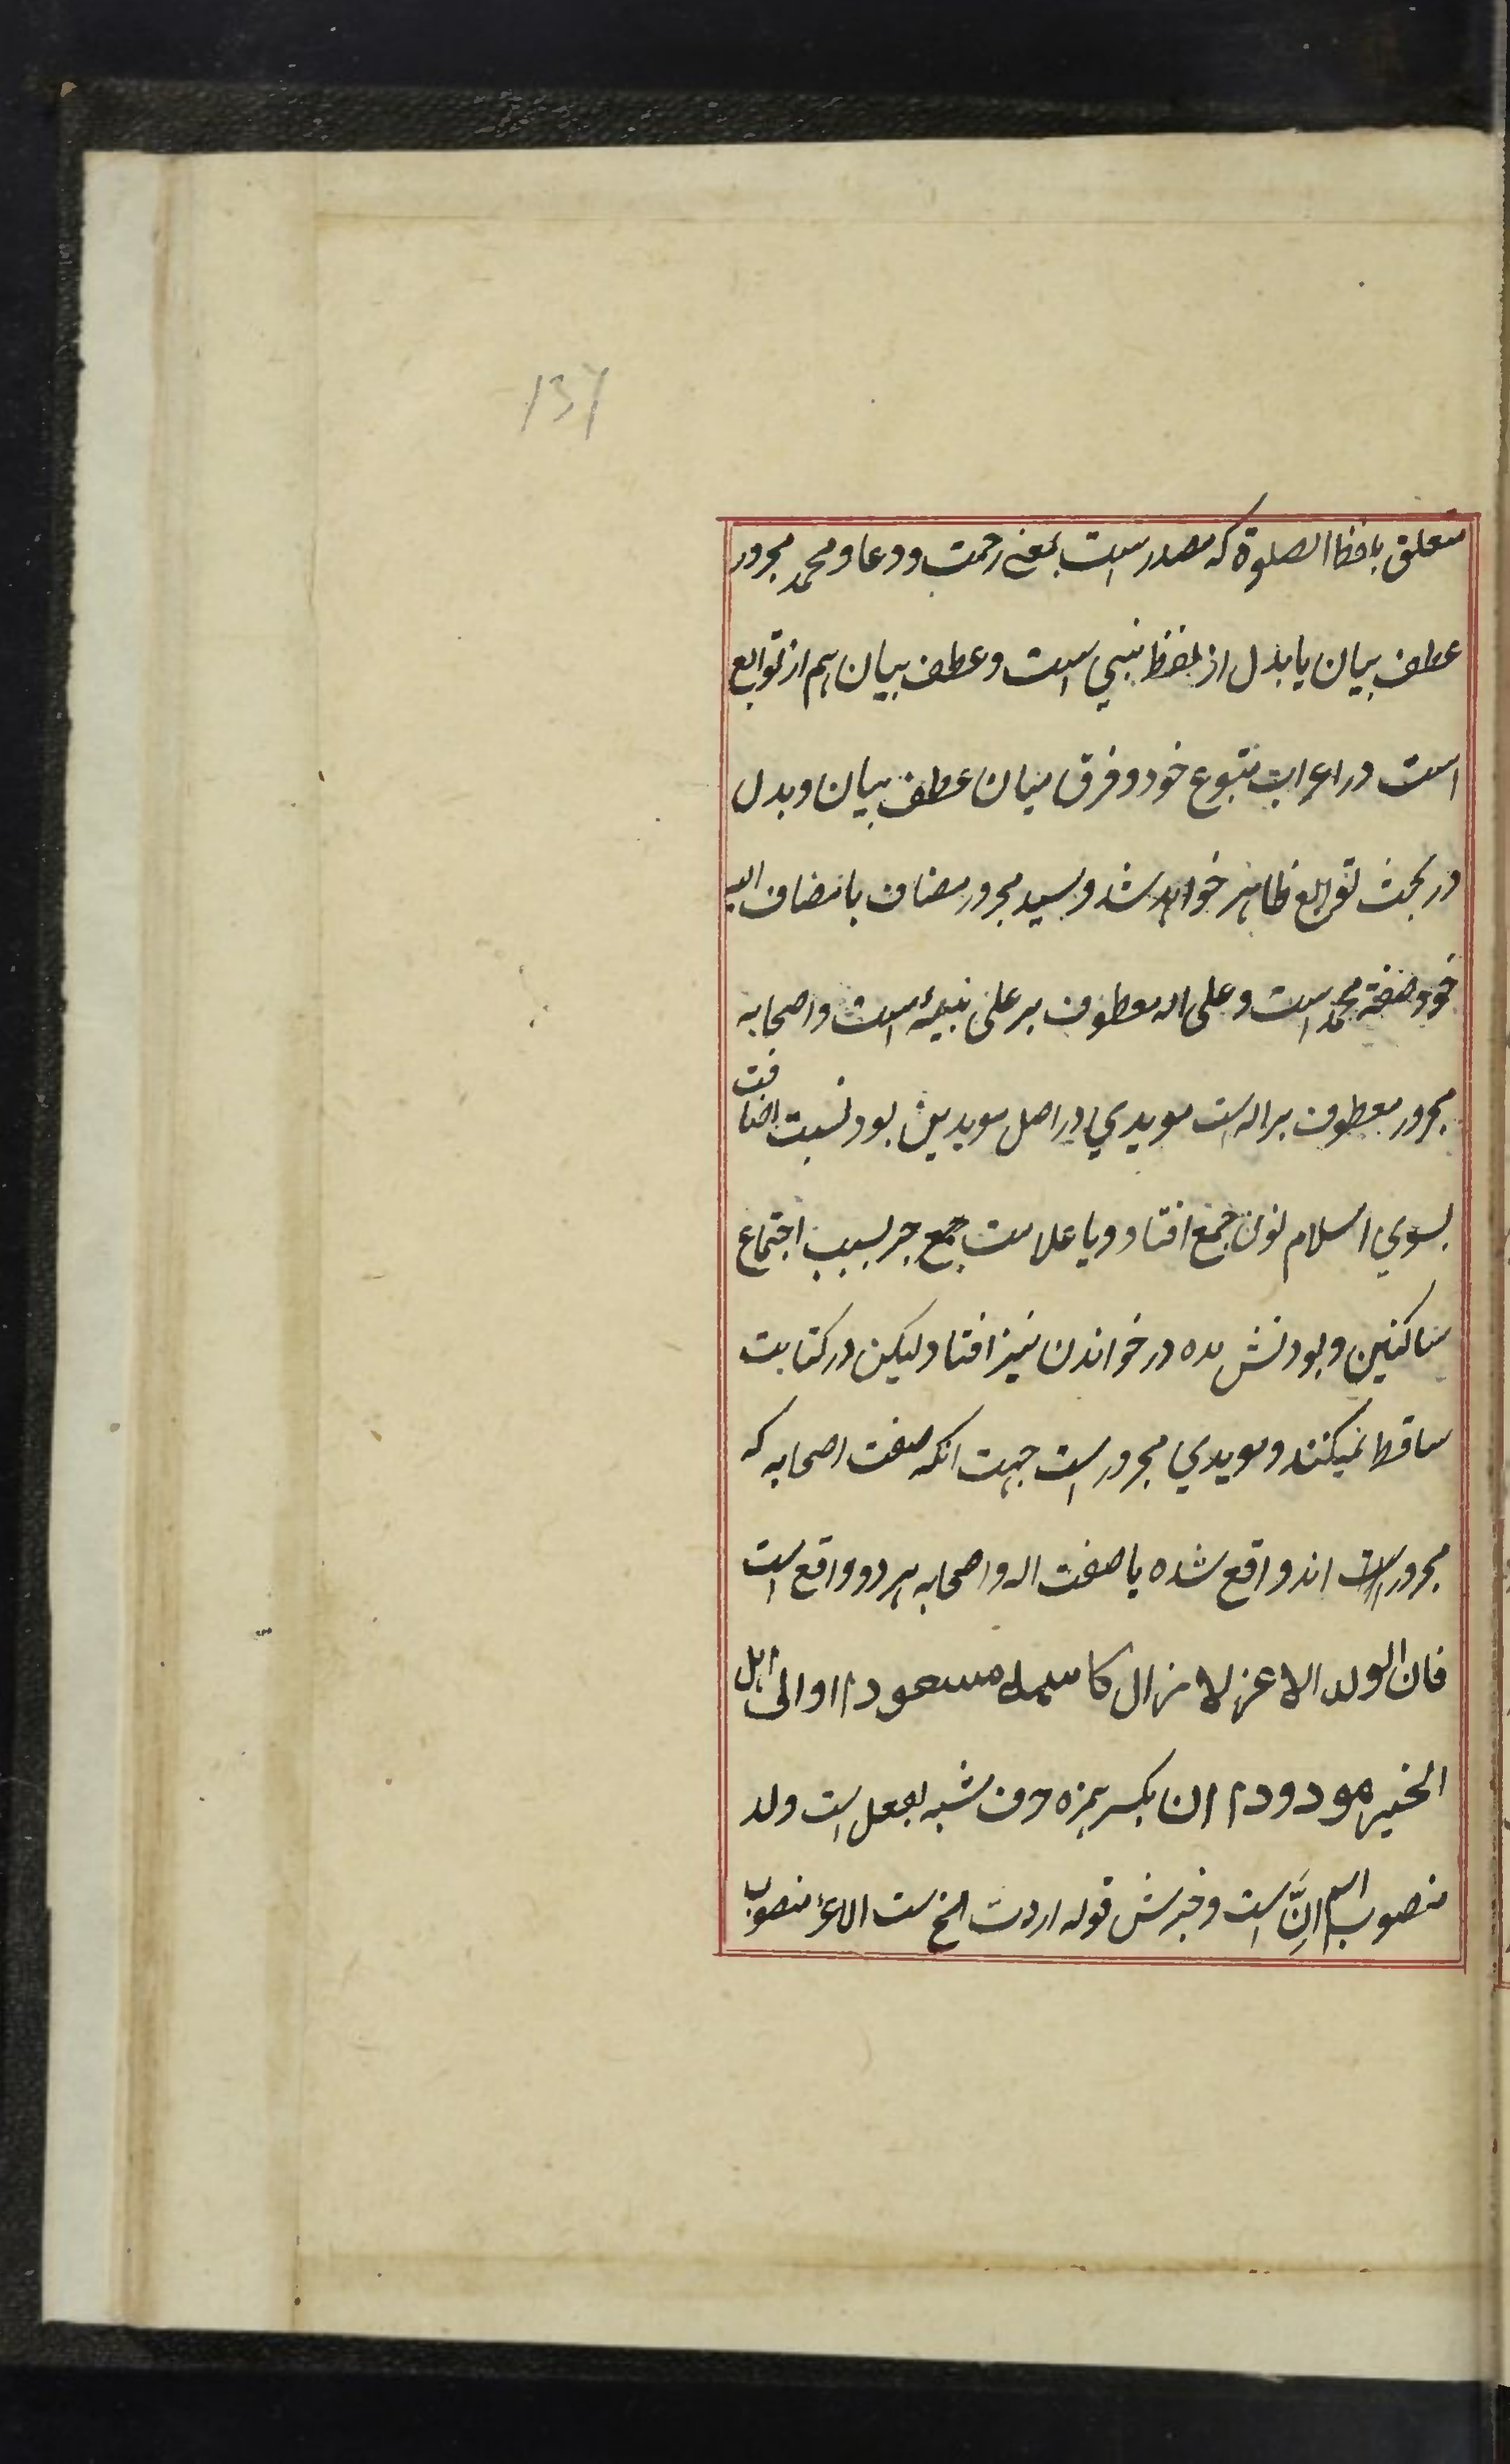 137
متعلق بلفظ الصلوة که مصدر است بمعنی رحمت و دعا و محمد مجرور
عطف بیان یا بدل از لفظ نبی است و عطف بیان هم از توابع
است در اعراب متبوع خود و فرق میان عطف بیان و بدل
در بحث توابع ظاهر خواهد شد و سید مجرور مضاف بامضاف الیه
خود صفة محمد است و علی اله معطوف بر علی نبیه است و اصحابه
مجرور معطوف بر اله است مویدی در اصل مویدین بود نسبت اضافت
بسوی اسلام نون جمع افتاد و یا علامت جمع جر بسبب اجتماع
ساکنین و بودنش مده در خواندن نیز افتاد لیکن در کتابت
ساقط نمیکنند و مویدی مجرور است جهت انکه صفت اصحابه که
مجرور است اند واقع شده یا صفت اله و اصحابه هر دو واقع است
فان الولد الاعز لا یزال کاسمه مسعودا و الی اهل
الخیر مودودا ان بکسر همزه حرف مشبه بفعل است ولد
منصوب اسم انَّ است و خبرش قوله اردت الخ ست الاعز منصوب